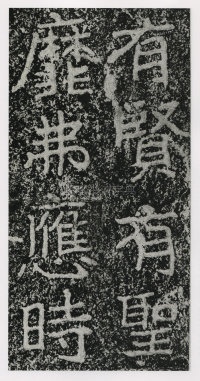 有賢有聖
靡弗應時